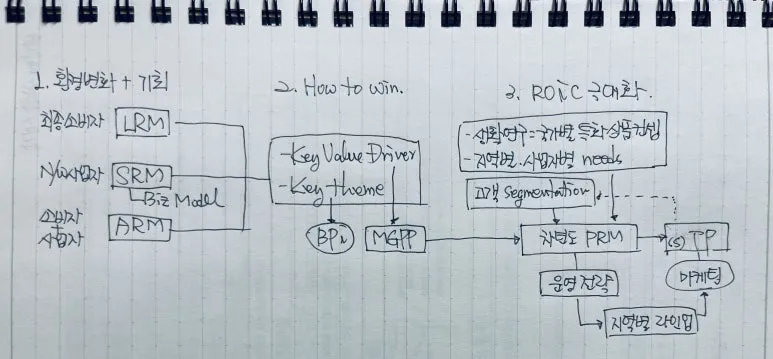 1. 환경변화 + 기회
최종소비자 LRM
N/W사업자 SRM
Biz Model
소비자
+
사업자
ARM
2. How to win.
- Key Value Driver
- Key theme
BPi
MGPP
3. ROIC 극대화.
- 생활연구 = 국가별 특화상품컨셉
- 지역별·사업자별 needs
고객 Segmentation
차년도 PRM
(S) TP
운영전략
마케팅
지역별 라인업